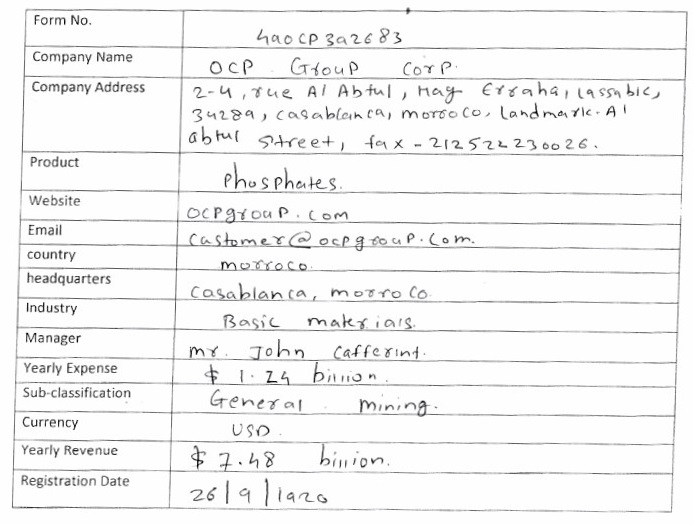 Form No. 4aOCP3a2683
Company Name OCP Group Corp.
Company Address 2-4, rue Al Abtul, Hay Erraha, Lassabic,
34289, Casablanca, morroco, Landmark-Al
abtul Street, fax - 212522230026.
Product Phosphates.
Website OCPgroup.com
Email Customer@ocpgroup.com.
country morroco.
headquarters Casablanca, morroco.
Industry Basic materials.
Manager mr. John Cafferint.
Yearly Expense $ 1.24 billion.
Sub-classification General mining.
Currency USD.
Yearly Revenue $ 7.48 billion.
Registration Date 26/9/1920